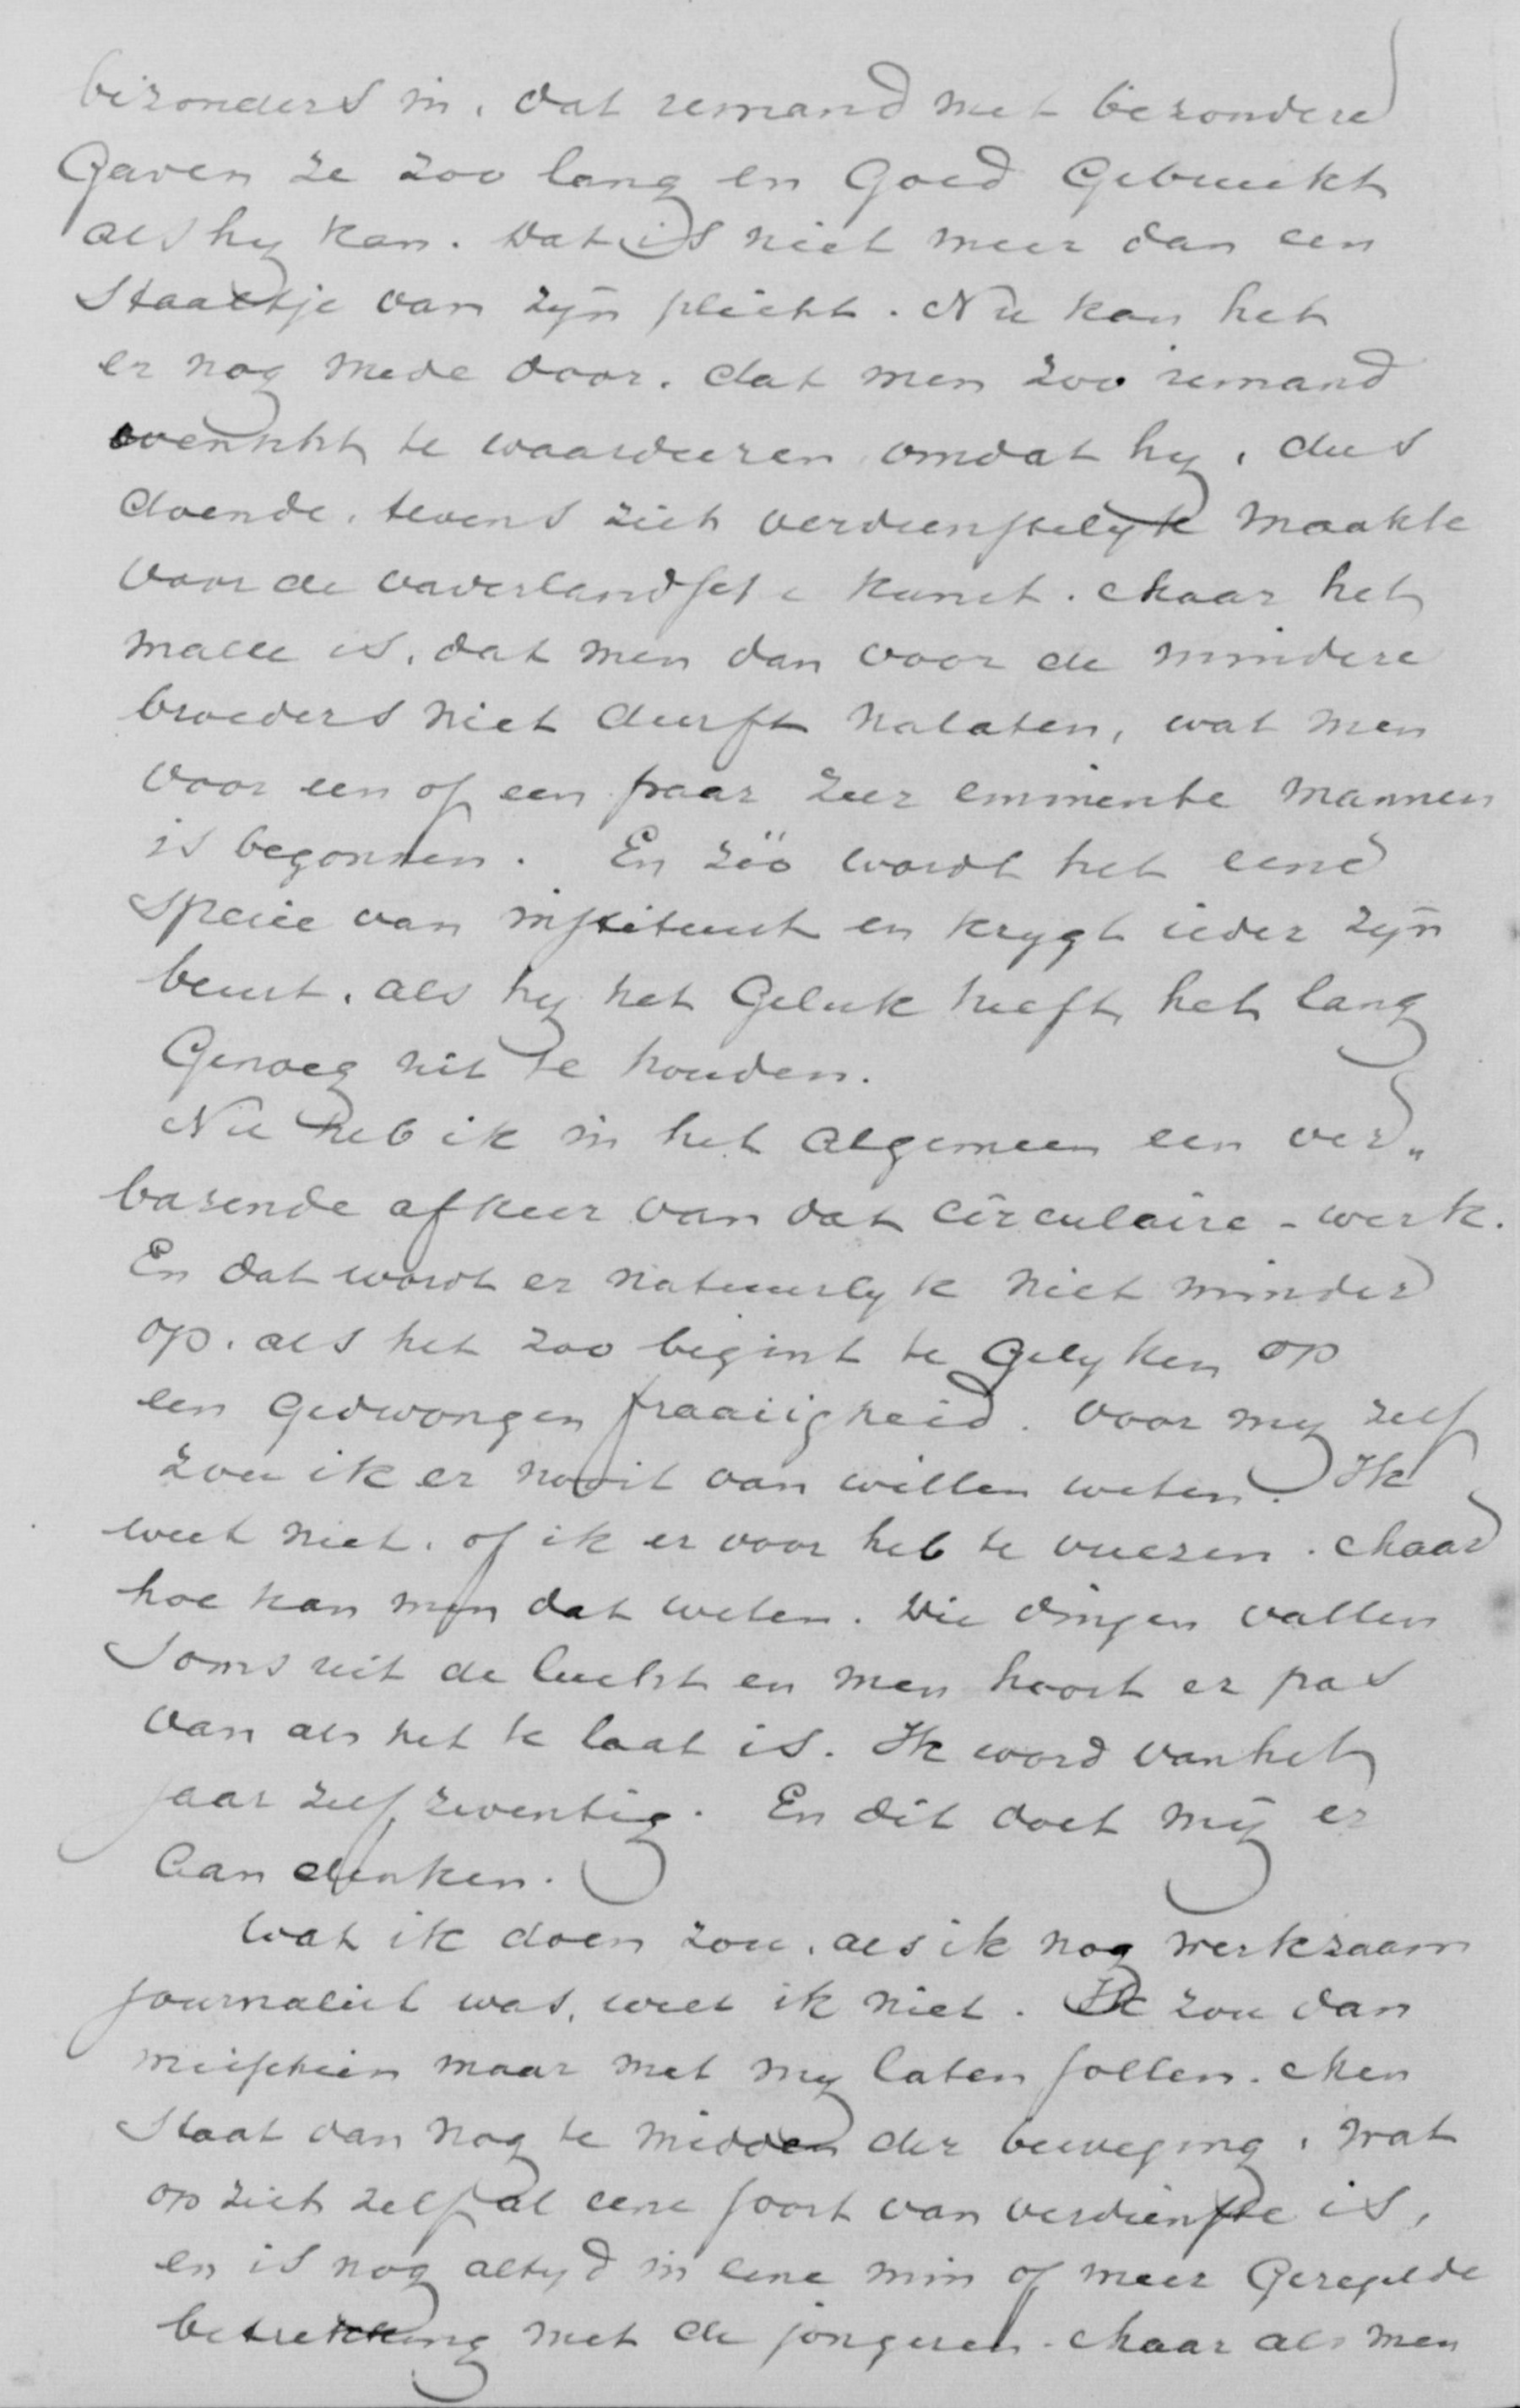 bizonders in, dat iemand met bizondere
Gaven ze zoo lang en Goed Gebruikt
als hy kan. Dat is niet meer dan een
Staaltje van zyn plicht. Nu kan het
er nog mede door, dat men zoo iemand
wenscht te waardeeren omdat hy, dus
doende, tevens zich verdienstelyk maakte
voor de vaderlandsche kunst. Maar het
malle is, dat men dan voor de mindere
broeders niet durft nalaten, wat men
voor een of een paar zeer eminente mannen
is begonnen. En zóó wordt het eene
specie van instituut en krygt ieder zyn
beurt, als hy het Geluk heeft het lang
Genoeg uit te houden.
Nu heb ik in het algemeen een ver„
bazende afkeer van dat circulaire-werk.
En dat wordt er natuurlyk niet minder
op, als het zoo begint te Gelyken op
een Gedwongen fraaiigheid. Voor my zelf
zou ik er nooit van willen weten. Ik
weet niet, of ik er voor heb te vreezen. Maar
hoe kan men dat weten. Die dingen vallen
Soms uit de lucht en men hoort er pas
van als het te laat is. Ik word van het
jaar zelf zeventig. En dit doet mij er
aan denken.
Wat ik doen zou, als ik nog werkzaam
journalist was, weet ik niet. Ik zou dan
misschien maar met my laten sollen. Men
Staat dan nog te midden der beweging, wat
op zich zelf al eene soort van verdienste is,
en is nog altyd in eene min of meer Geregelde
betrekking met de jongeren. Maar als men